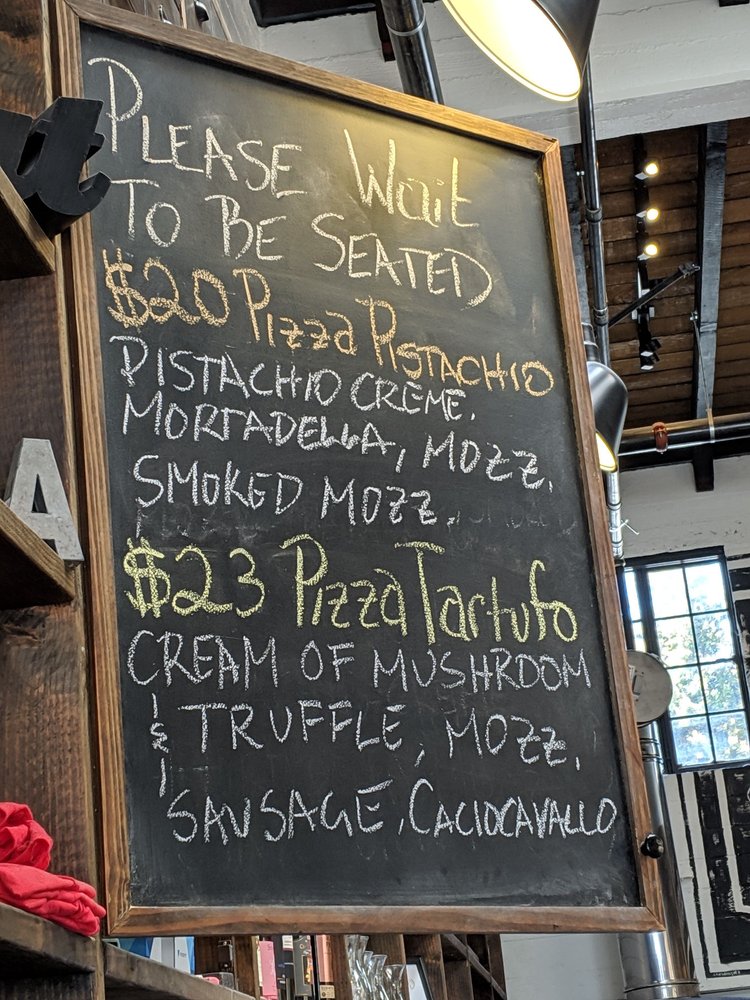 PLEASE Wait
TO BE SEATED
$20 Pizza PISTACHIO
PISTACHIO CREME,
MORTADELLA, MOZZ,
SMOKED MOZZ.
$23 Pizza Tartufo
CREAM OF MUSHROOM
& TRUFFLE, MOZZ,
SAUSAGE, CACIOCAVALLO
A